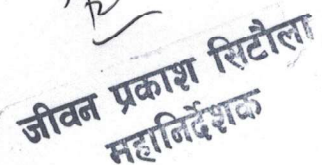 जीवन प्रकाश सिटौला
महानिर्देशक